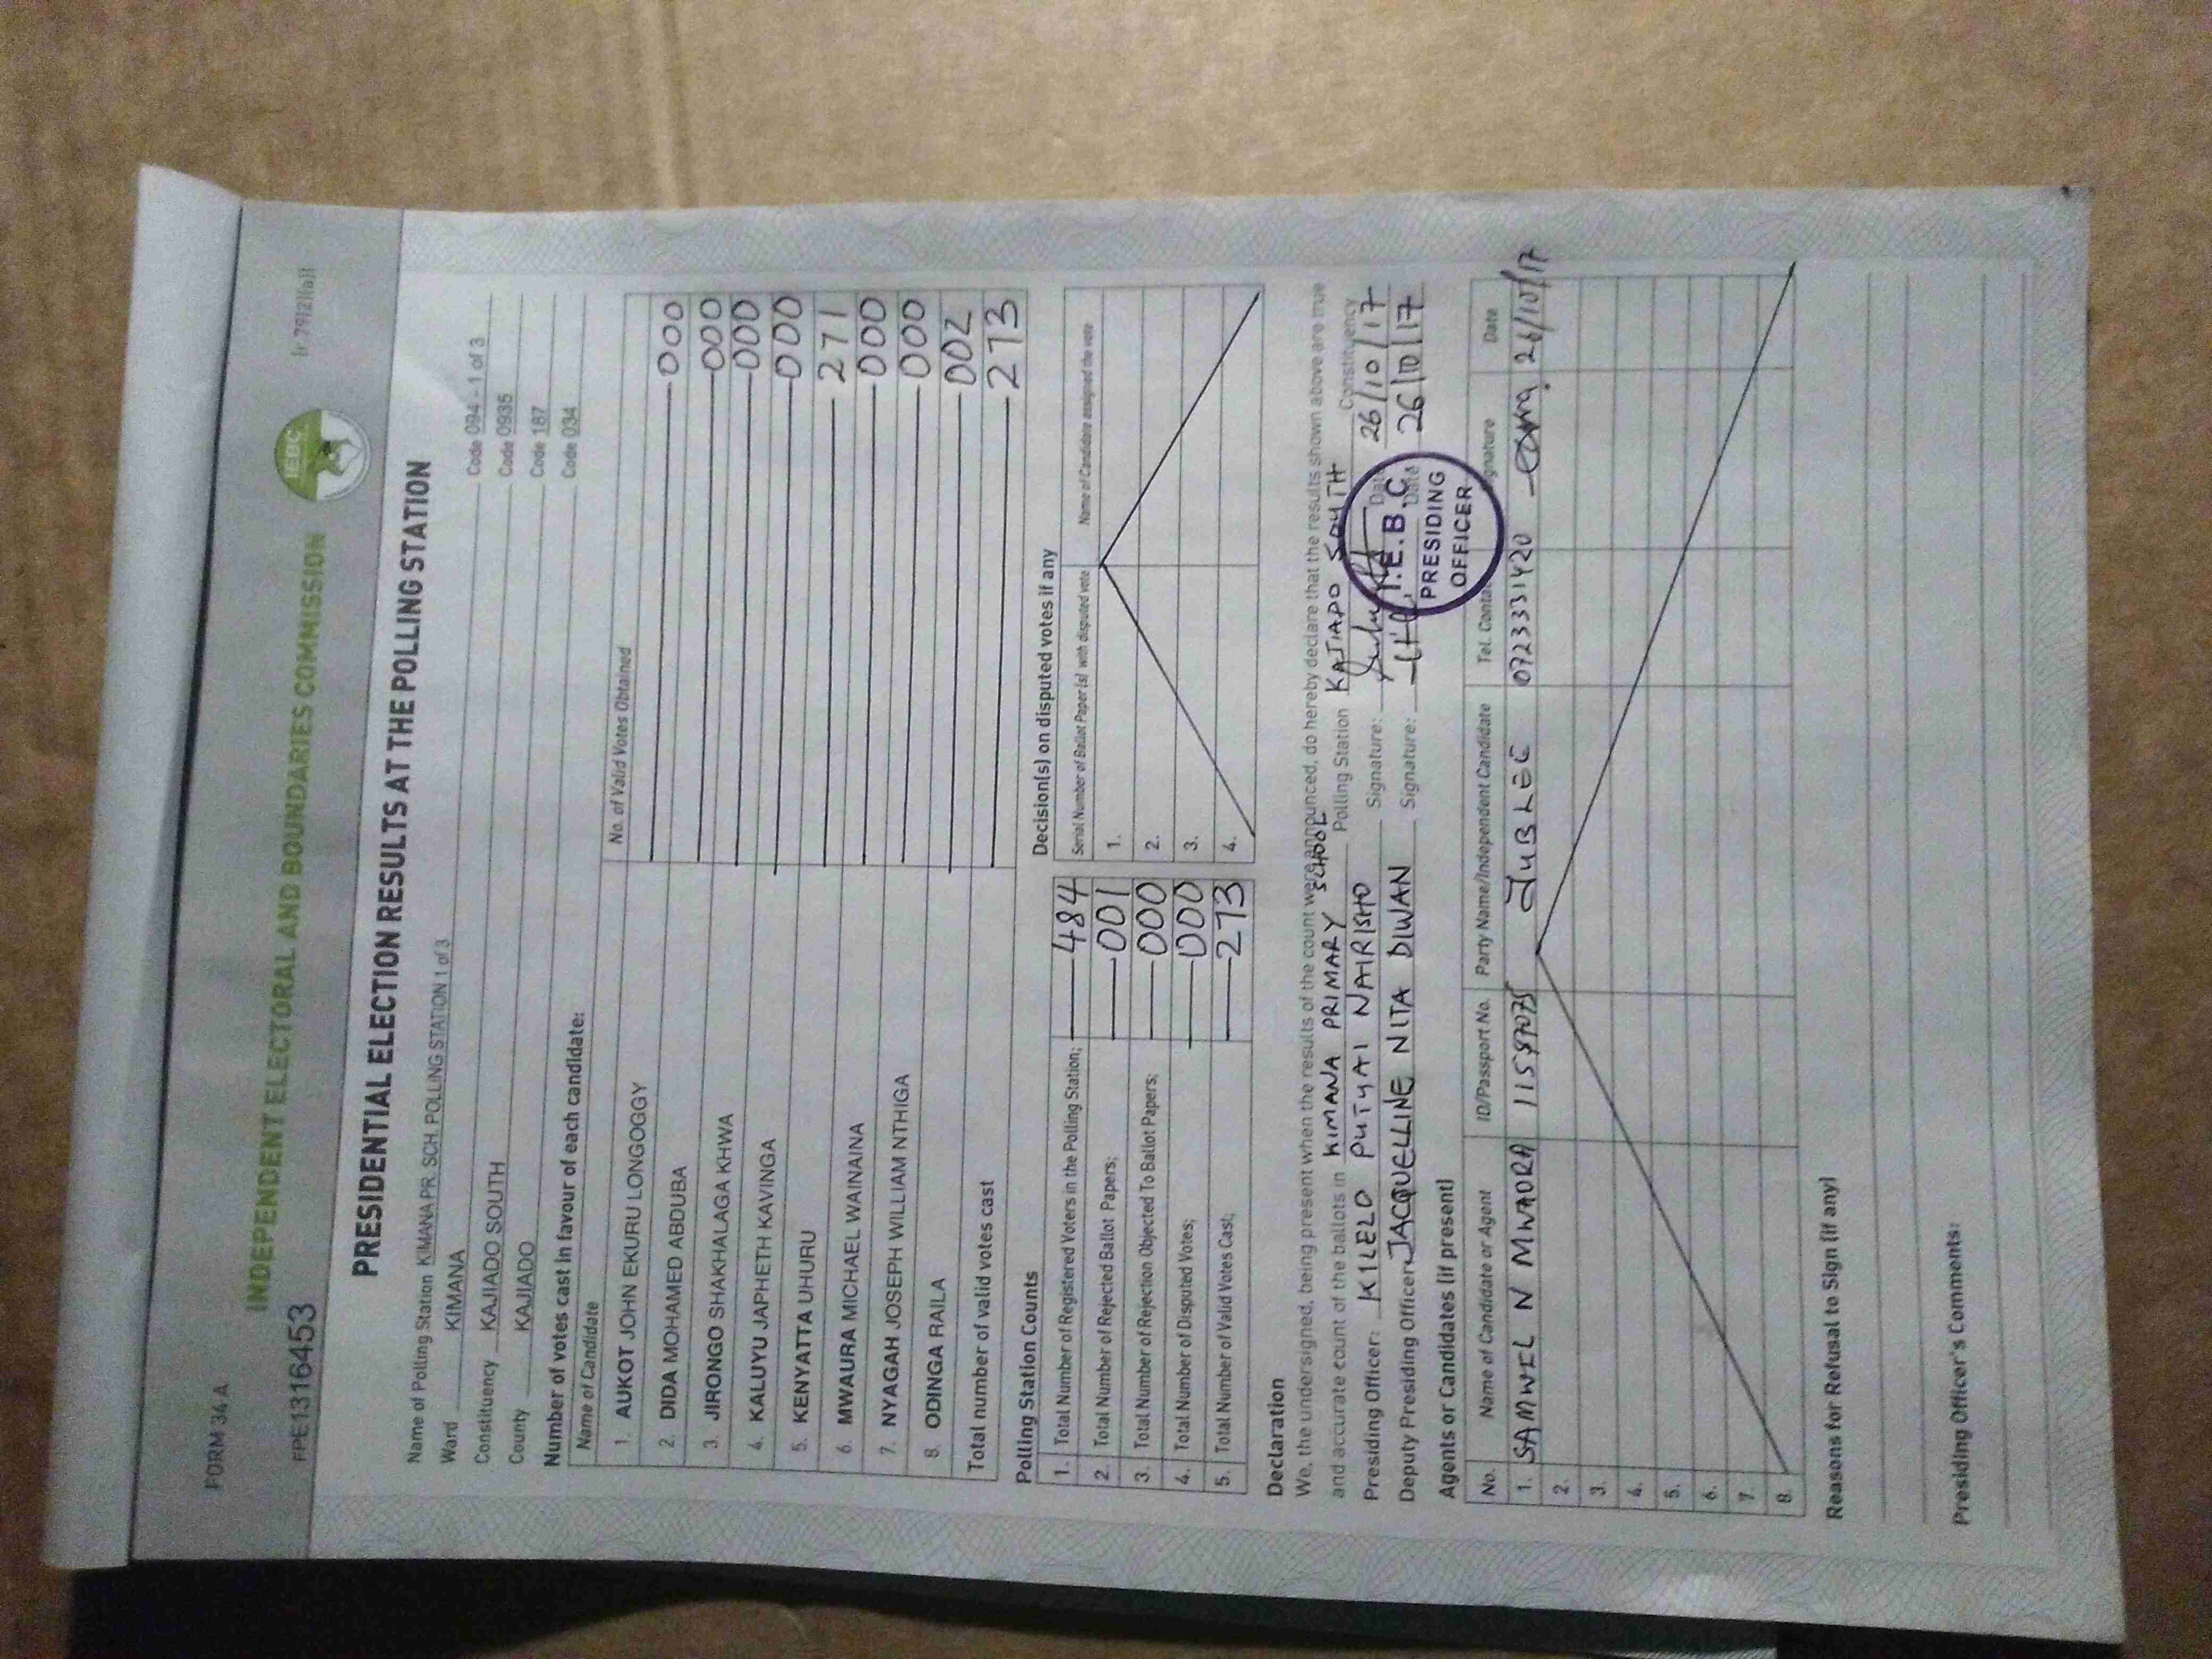 FORM 34 A
INDEPENDENT ELECTORAL AND BOUNDARIES COMMISSION
IEBC
FPE1316453
PRESIDENTIAL ELECTION RESULTS AT THE POLLING STATION
Name of Polling Station KIMANA PR. SCH. POLLING STATION 1 of 3 Code 094 - 1 of 3
Ward KIMANA Code 0935
Constituency KAJIADO SOUTH Code 187
County KAJIADO Code 034
Number of votes cast in favour of each candidate:
Name of Candidate No. of Valid Votes Obtained
1. AUKOT JOHN EKURU LONGOGGY 000
2. DIDA MOHAMED ABDUBA 000
3. JIRONGO SHAKHALAGA KHWA 000
4. KALUYU JAPHETH KAVINGA 000
5. KENYATTA UHURU 271
6. MWAURA MICHAEL WAINAINA 000
7. NYAGAH JOSEPH WILLIAM NTHIGA 000
8. ODINGA RAILA 002
Total number of valid votes cast 273
Polling Station Counts
1. Total Number of Registered Voters in the Polling Station; 484
2. Total Number of Rejected Ballot Papers; 001
3. Total Number of Rejection Objected To Ballot Papers; 000
4. Total Number of Disputed Votes; 000
5. Total Number of Valid Votes Cast; 273
Decision(s) on disputed votes if any
Serial Number of Ballot Paper(s) with disputed vote Name of Candidate assigned the vote
1.
2.
3.
4.
Declaration
We, the undersigned, being present when the results of the count were announced, do hereby declare that the results shown above are true
and accurate count of the ballots in KIMANA PRIMARY SCHOOL Polling Station KAJIADO SOUTH Constituency
Presiding Officer: KILELO PUTYAI NAIRISHO Signature: Date 26/10/17
Deputy Presiding Officer: JACQUELLINE NITA DIWAN Signature: Date 26/10/17
I.E.B.C
PRESIDING
OFFICER
Agents or Candidates (if present)
No. Name of Candidate or Agent ID/Passport No. Party Name/Independent Candidate Tel. Contact Signature Date
1. SAMWEL N MWAORA 11587075 JUBLEE 0723331420 26/10/17
2.
3.
4.
5.
6.
7.
8.
Reasons for Refusal to Sign (if any)
Presiding Officer's Comments: